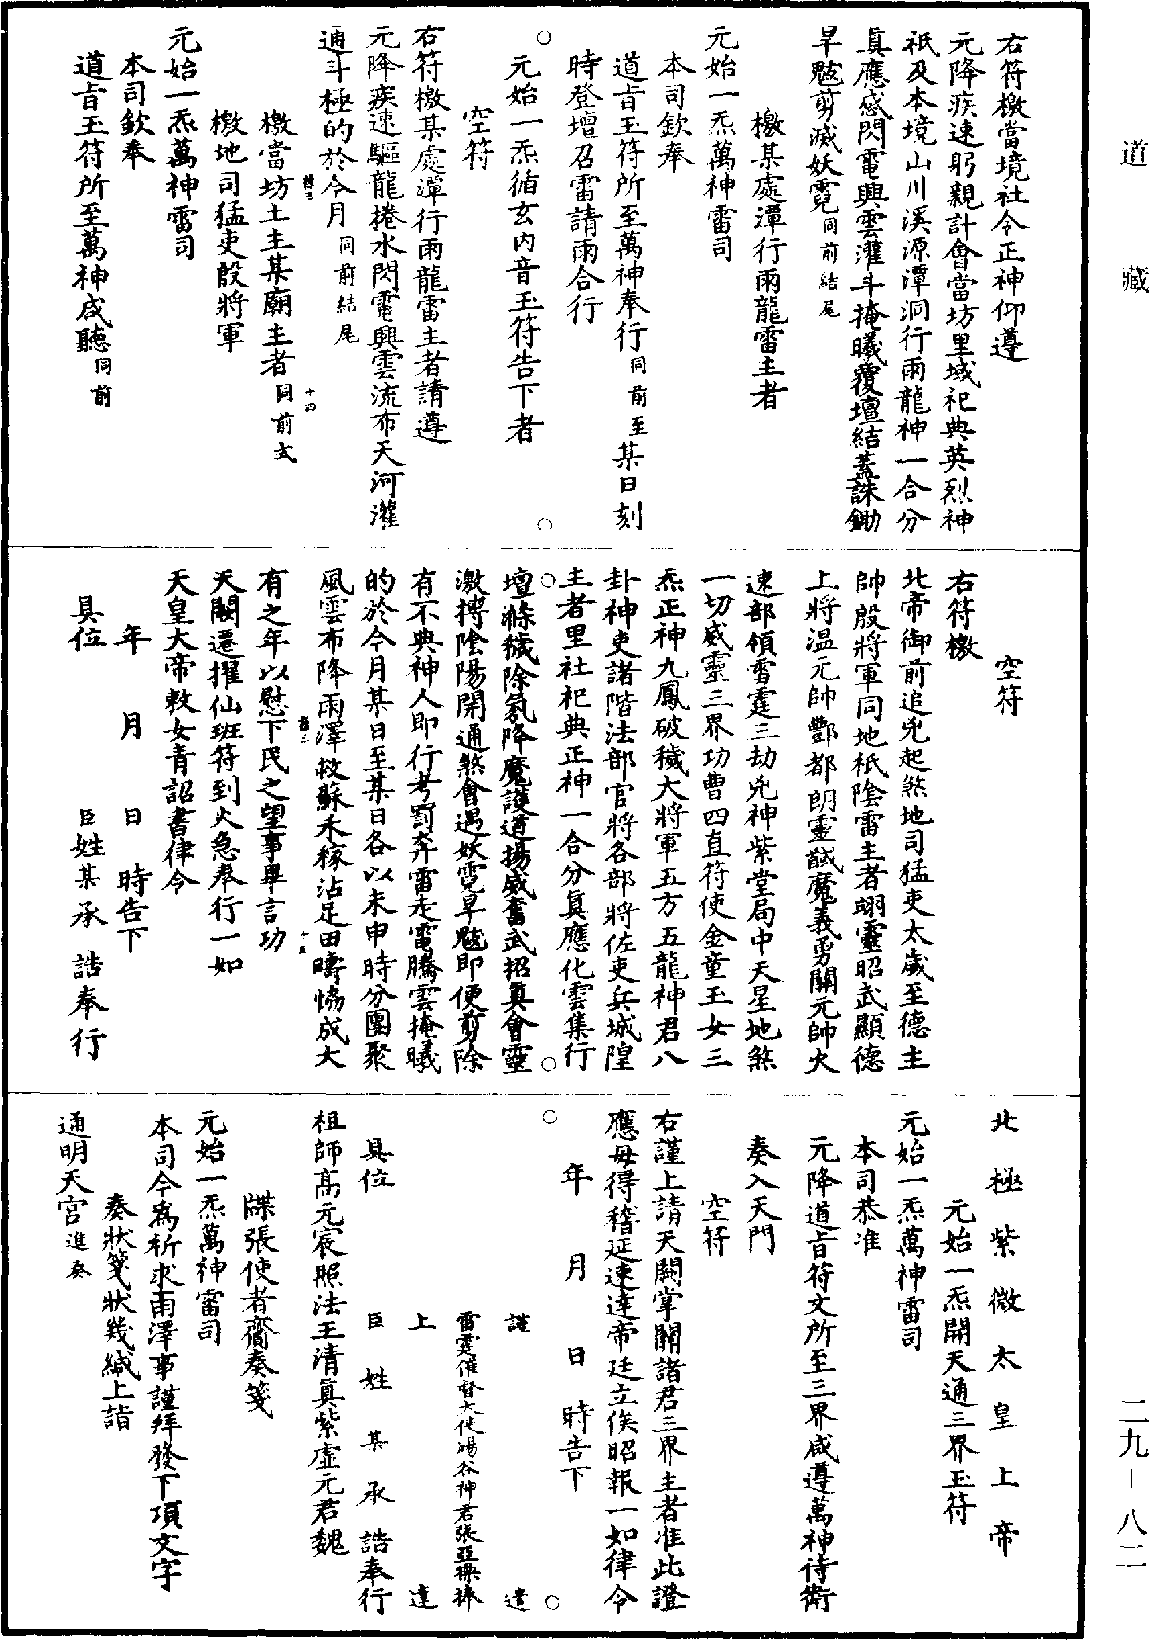 道藏
二九—八二
右符檄當境社令正神仰遵
元降疾速躬親計會當坊里域祀典英烈神
祇及本境山川溪源潭洞行雨龍神一合分
真應感閃電興雲灌斗掩曦覆壇結蓋誅鋤
旱魃剪滅妖霓同前結尾
檄某處潭行雨龍雷主者
元始一炁萬神雷司
本司欽奉
道旨玉符所至萬神奉行同前至某日刻
時登壇召雷請雨合行
元始一炁循玄內音玉符告下者
空符
右符檄某處潭行雨龍雷主者請遵
元降疾速驅龍捲水閃電興雲流布天河灌
通斗極的於今月同前結尾
檄當坊土主某廟主者同前式
十四
檄地司猛吏殷將軍
元始一炁萬神雷司
本司欽奉
道旨玉符所至萬神咸聽同前
空符
右符檄
北帝御前追兇起煞地司猛吏太歲至德主
帥殷將軍同地祇陰雷主者翊靈昭武顯德
上將温元帥酆都朗靈馘魔義勇關元帥火
速部領雷霆三劫兇神紫堂局中天星地煞
一切威靈三界功曹四直符使金童玉女三
炁正神九鳳破穢大將軍五方五龍神君八
卦神吏諸階法部官將各部將佐吏兵城隍
主者里社祀典正神一合分真應化雲集行
壇滌穢除氛降魔護道揚威奮武招真會靈
激搏陰陽開通煞會遇妖霓旱魃即便剪除
有不典神人即行考罰奔雷走電騰雲掩曦
的於今月某日至某日各以未申時分團聚
風雲布降雨澤救蘇禾稼沾足田疇恊成大
有之年以慰下民之望事畢言功
天闕遷擢仙班符到火急奉行一如
天皇大帝敕女青詔書律令
年月日時告下
具位臣姓某承誥奉行
北極紫微太皇上帝
元始一炁開天通三界玉符
元始一炁萬神雷司
本司恭准
元降道旨符文所至三界咸遵萬神侍衛
奏入天門
空符
右謹上請天闕掌關諸君三界主者准此證
應毋得稽延速達帝廷立俟昭報一如律令
年月日時告下
謹遣
雷霆催督大使暘谷神君張亞捧
上達
具位臣姓某承誥奉行
祖師高元宸照法王清真紫虛元君魏
牒張使者齎奏箋
元始一炁萬神雷司
本司今為祈求雨澤事謹拜發下項文字
奏狀箋狀幾緘上詣
通明天宮進奏